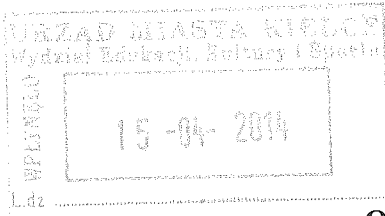 URZĄD MIASTA KIELCE
Wydział Edukacji, Kultury i Sportu
WPŁYNĘŁO
15 -04- 2014
L.dz